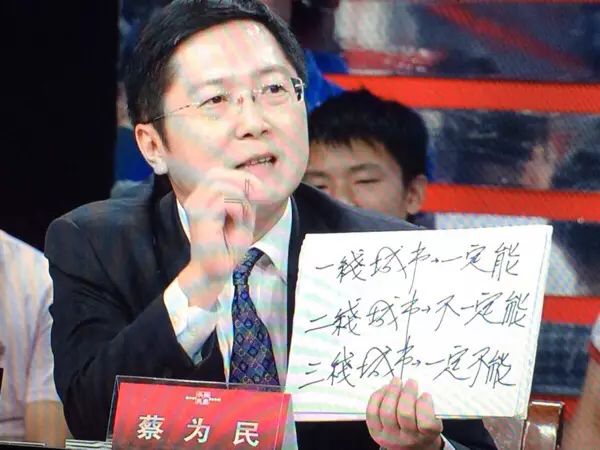 一綫城市→一定能
二綫城市→不一定能
三綫城市→一定不能
蔡为民